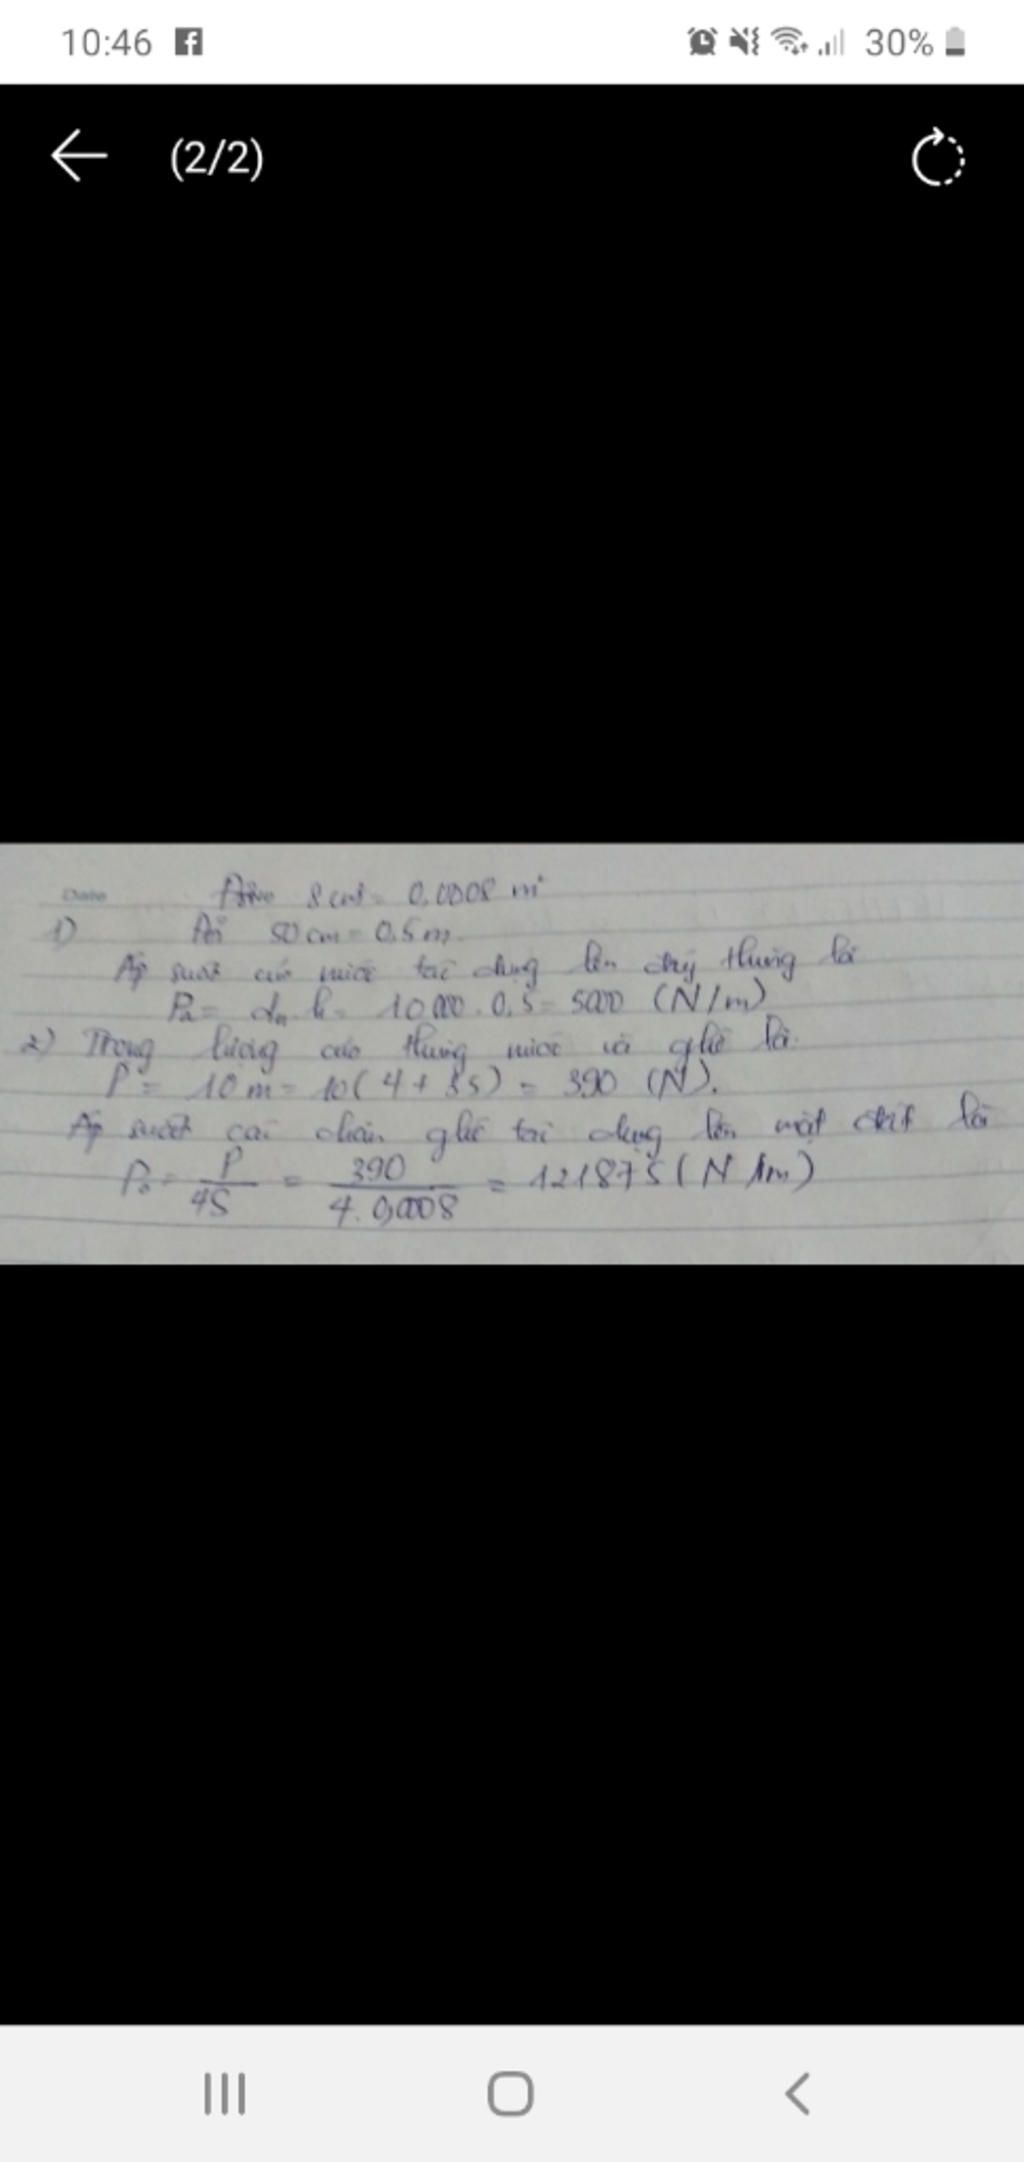 10:46 30%
(2/2)
Date
Đổi 8 cm² = 0,0008 m²
1) Đổi 50 cm = 0,5 m
Áp suất của nước tác dụng lên đáy thùng là
= dn.h = 10000.0,5 = 5000 (N/m)
2) Trọng lượng của thùng nước và ghế là:
P = 10m = 10(4+35) = 390 (N).
Áp suất các chân ghế tác dụng lên mặt đất là
= P/4S = 390/4.0,0008 = 121875 (N/m)